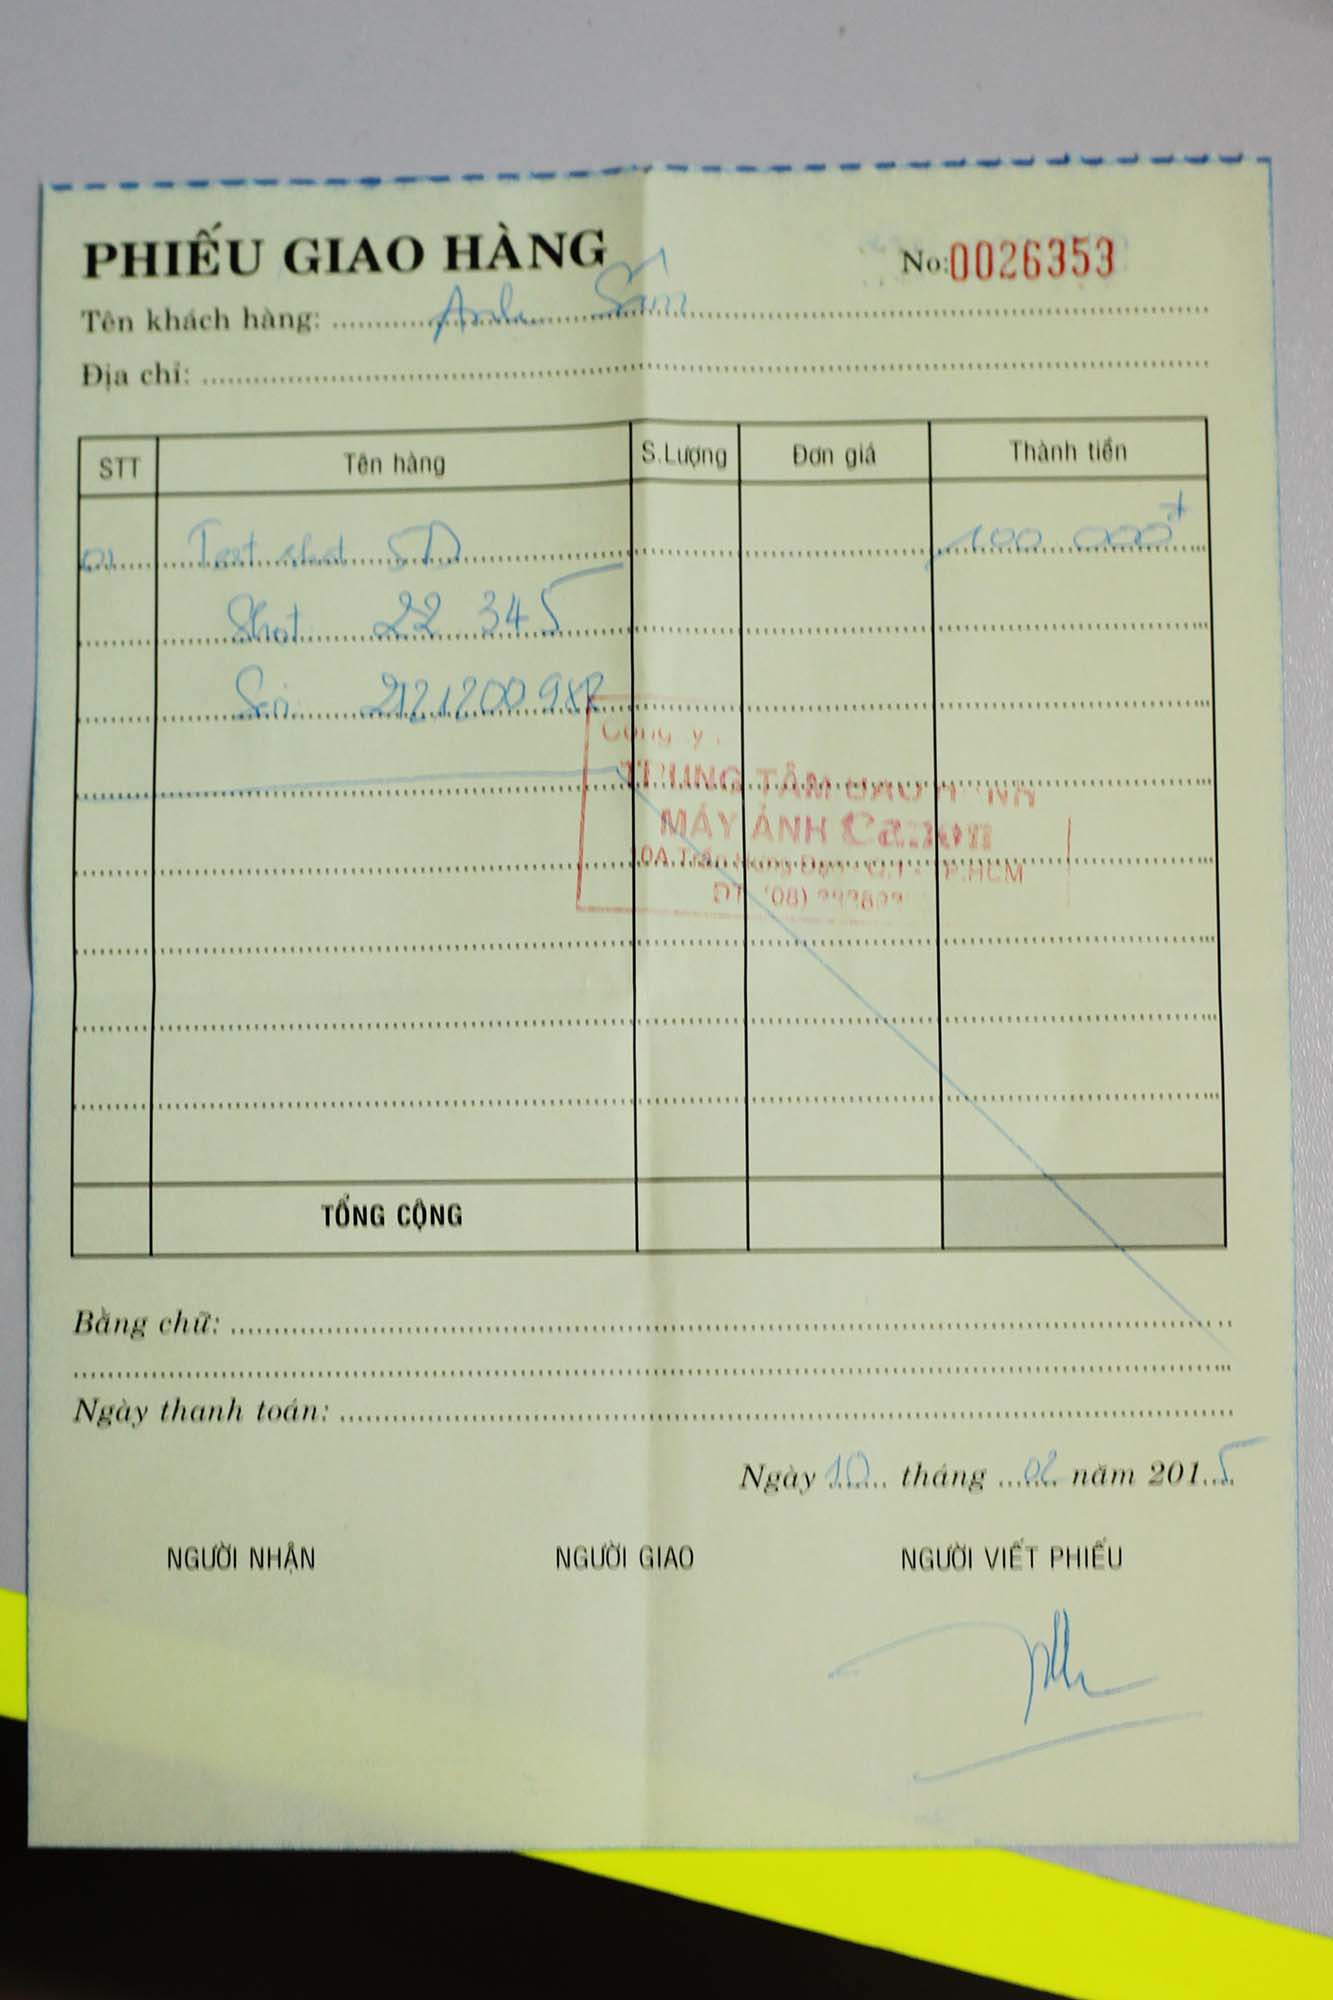 PHIẾU GIAO HÀNG
No: 0026353
Tên khách hàng: Anh Sơn
Địa chỉ:
STT Tên hàng S.Lượng Đơn giá Thành tiền
01 Test shot 5D 100 000đ
Shot 22 345
Seri 212120098
TRUNG TÂM BẢO HÀNH
MÁY ẢNH Canon
Trần Hưng Đạo Q.1 - TP.HCM
ĐT (08)
TỔNG CỘNG
Bằng chữ:
Ngày thanh toán:
Ngày 10 tháng 02 năm 2015
NGƯỜI NHẬN NGƯỜI GIAO NGƯỜI VIẾT PHIẾU